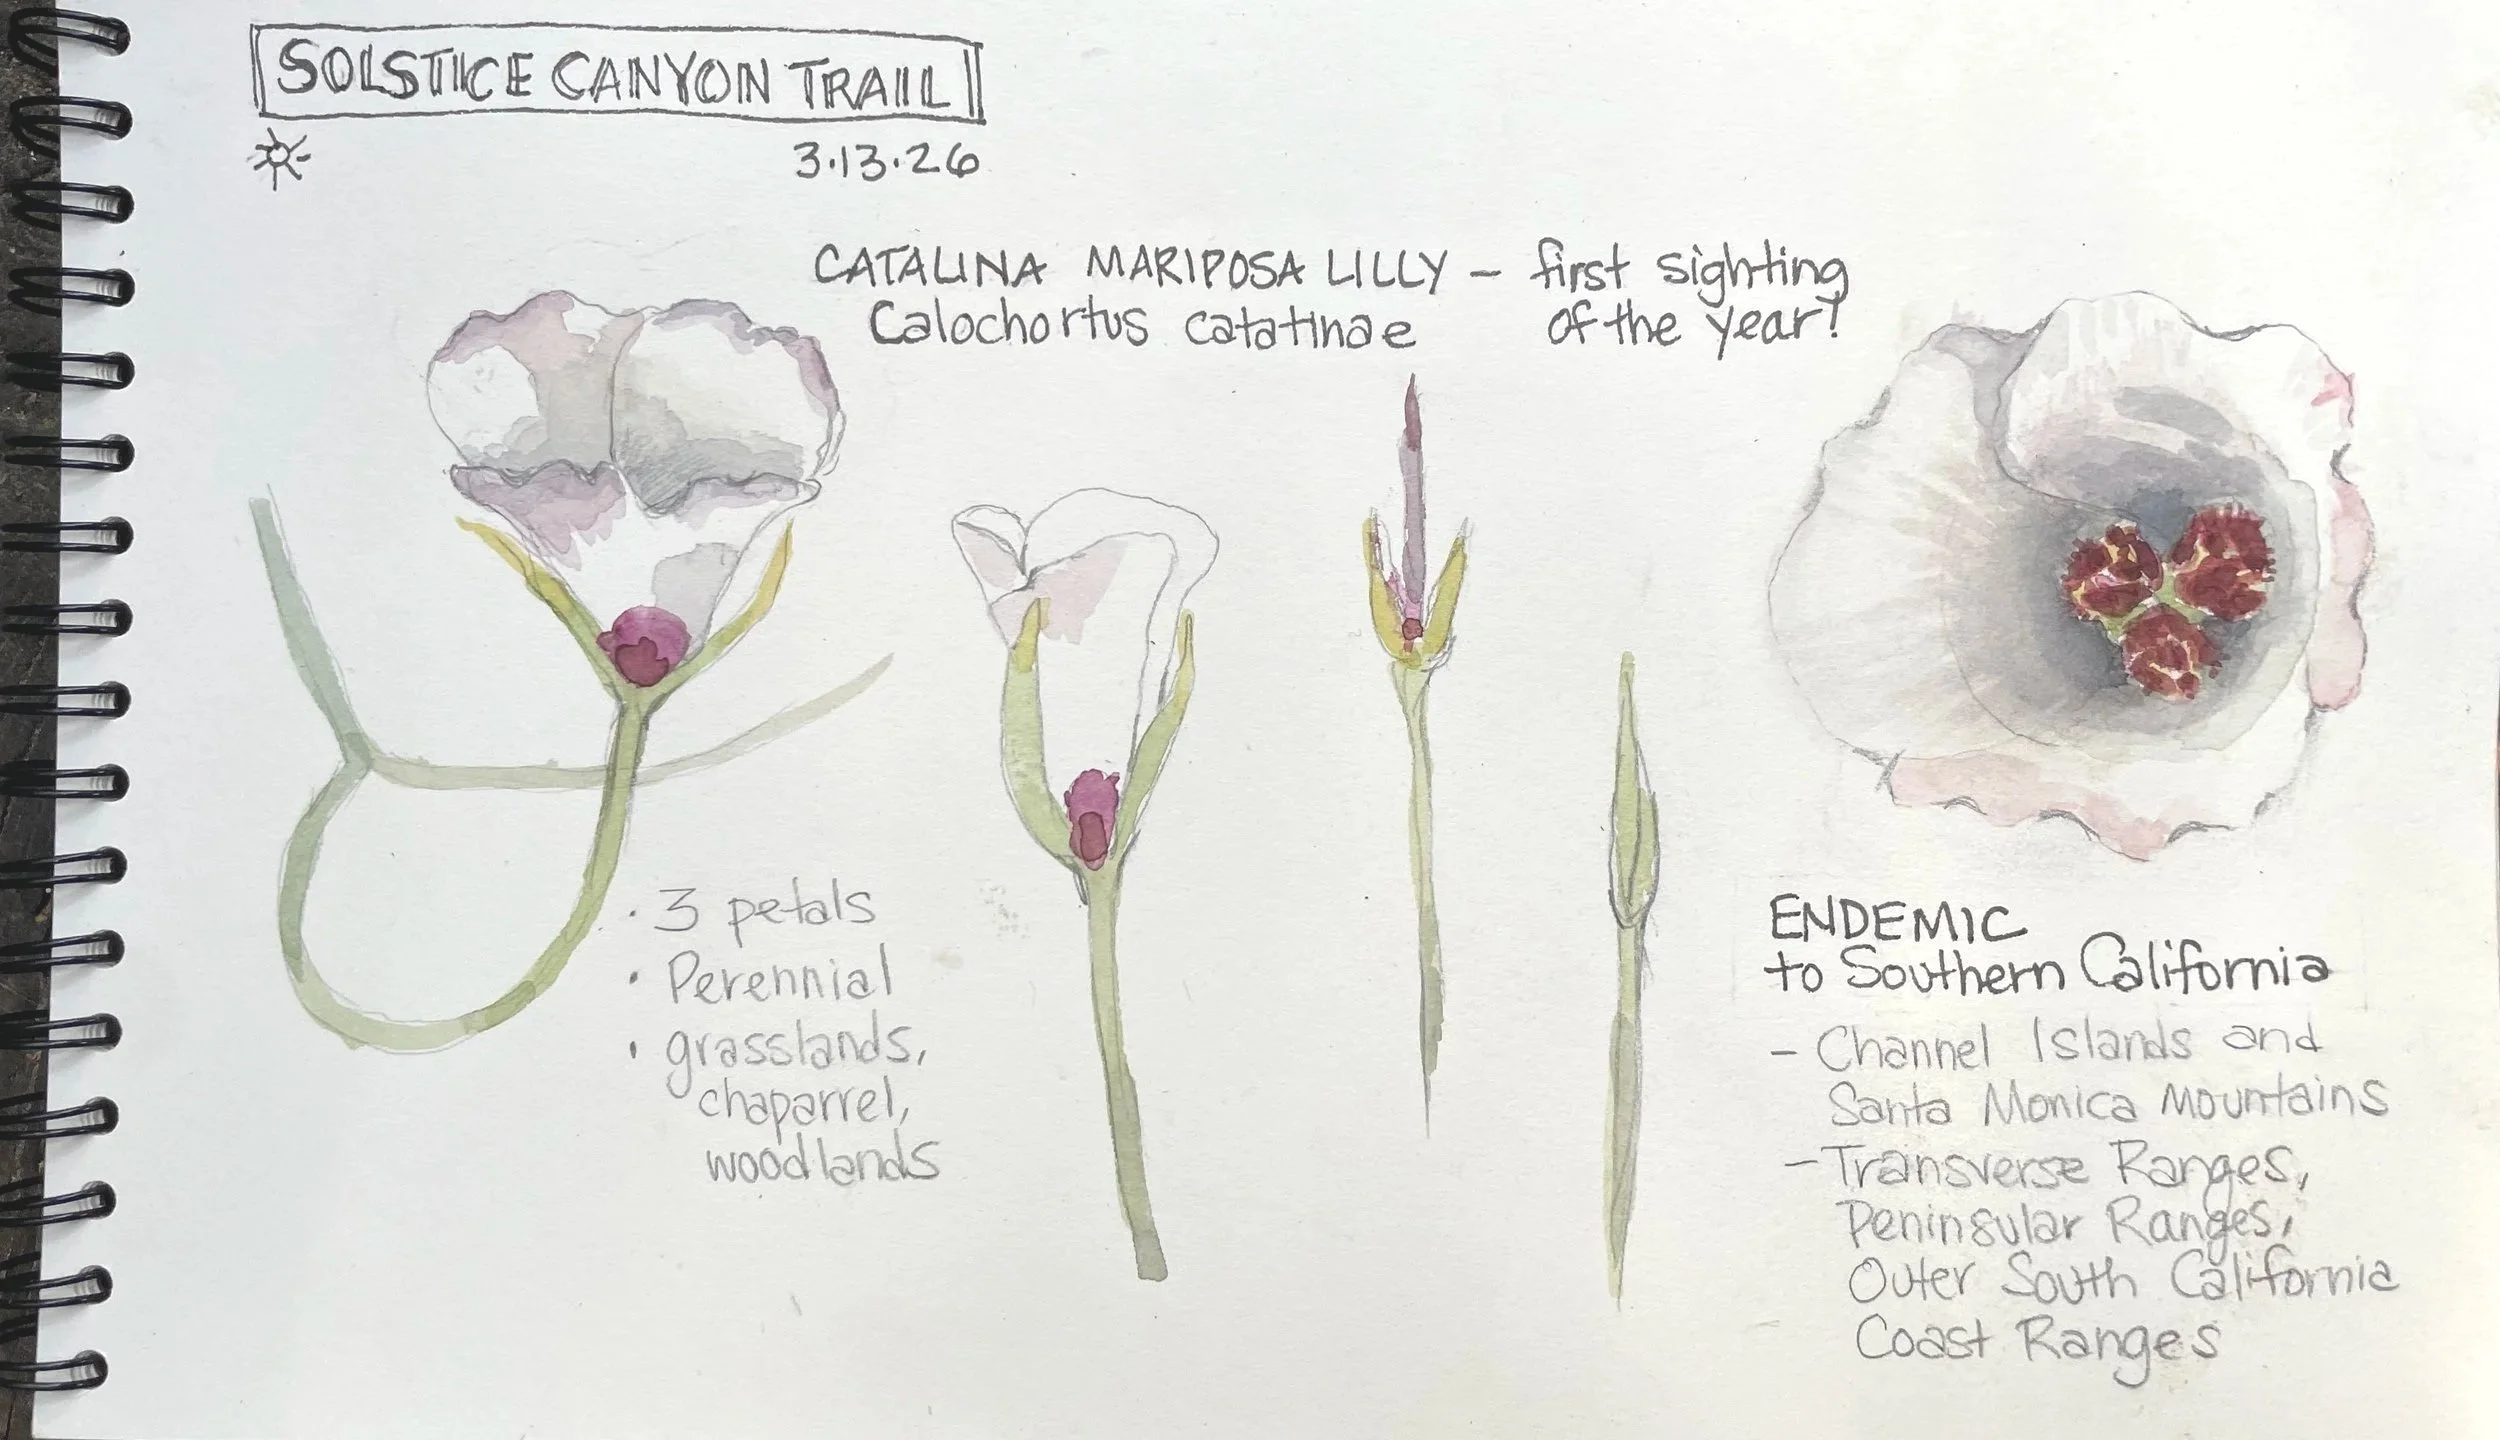 SOLSTICE CANYON TRAIL
3.13.26
CATALINA MARIPOSA LILLY – first sighting
Calochortus catatinae of the year!
• 3 petals
• Perennial
• grasslands,
chaparrel,
woodlands
ENDEMIC
to Southern California
– Channel Islands and
Santa Monica Mountains
– Transverse Ranges,
Peninsular Ranges,
Outer South California
Coast Ranges